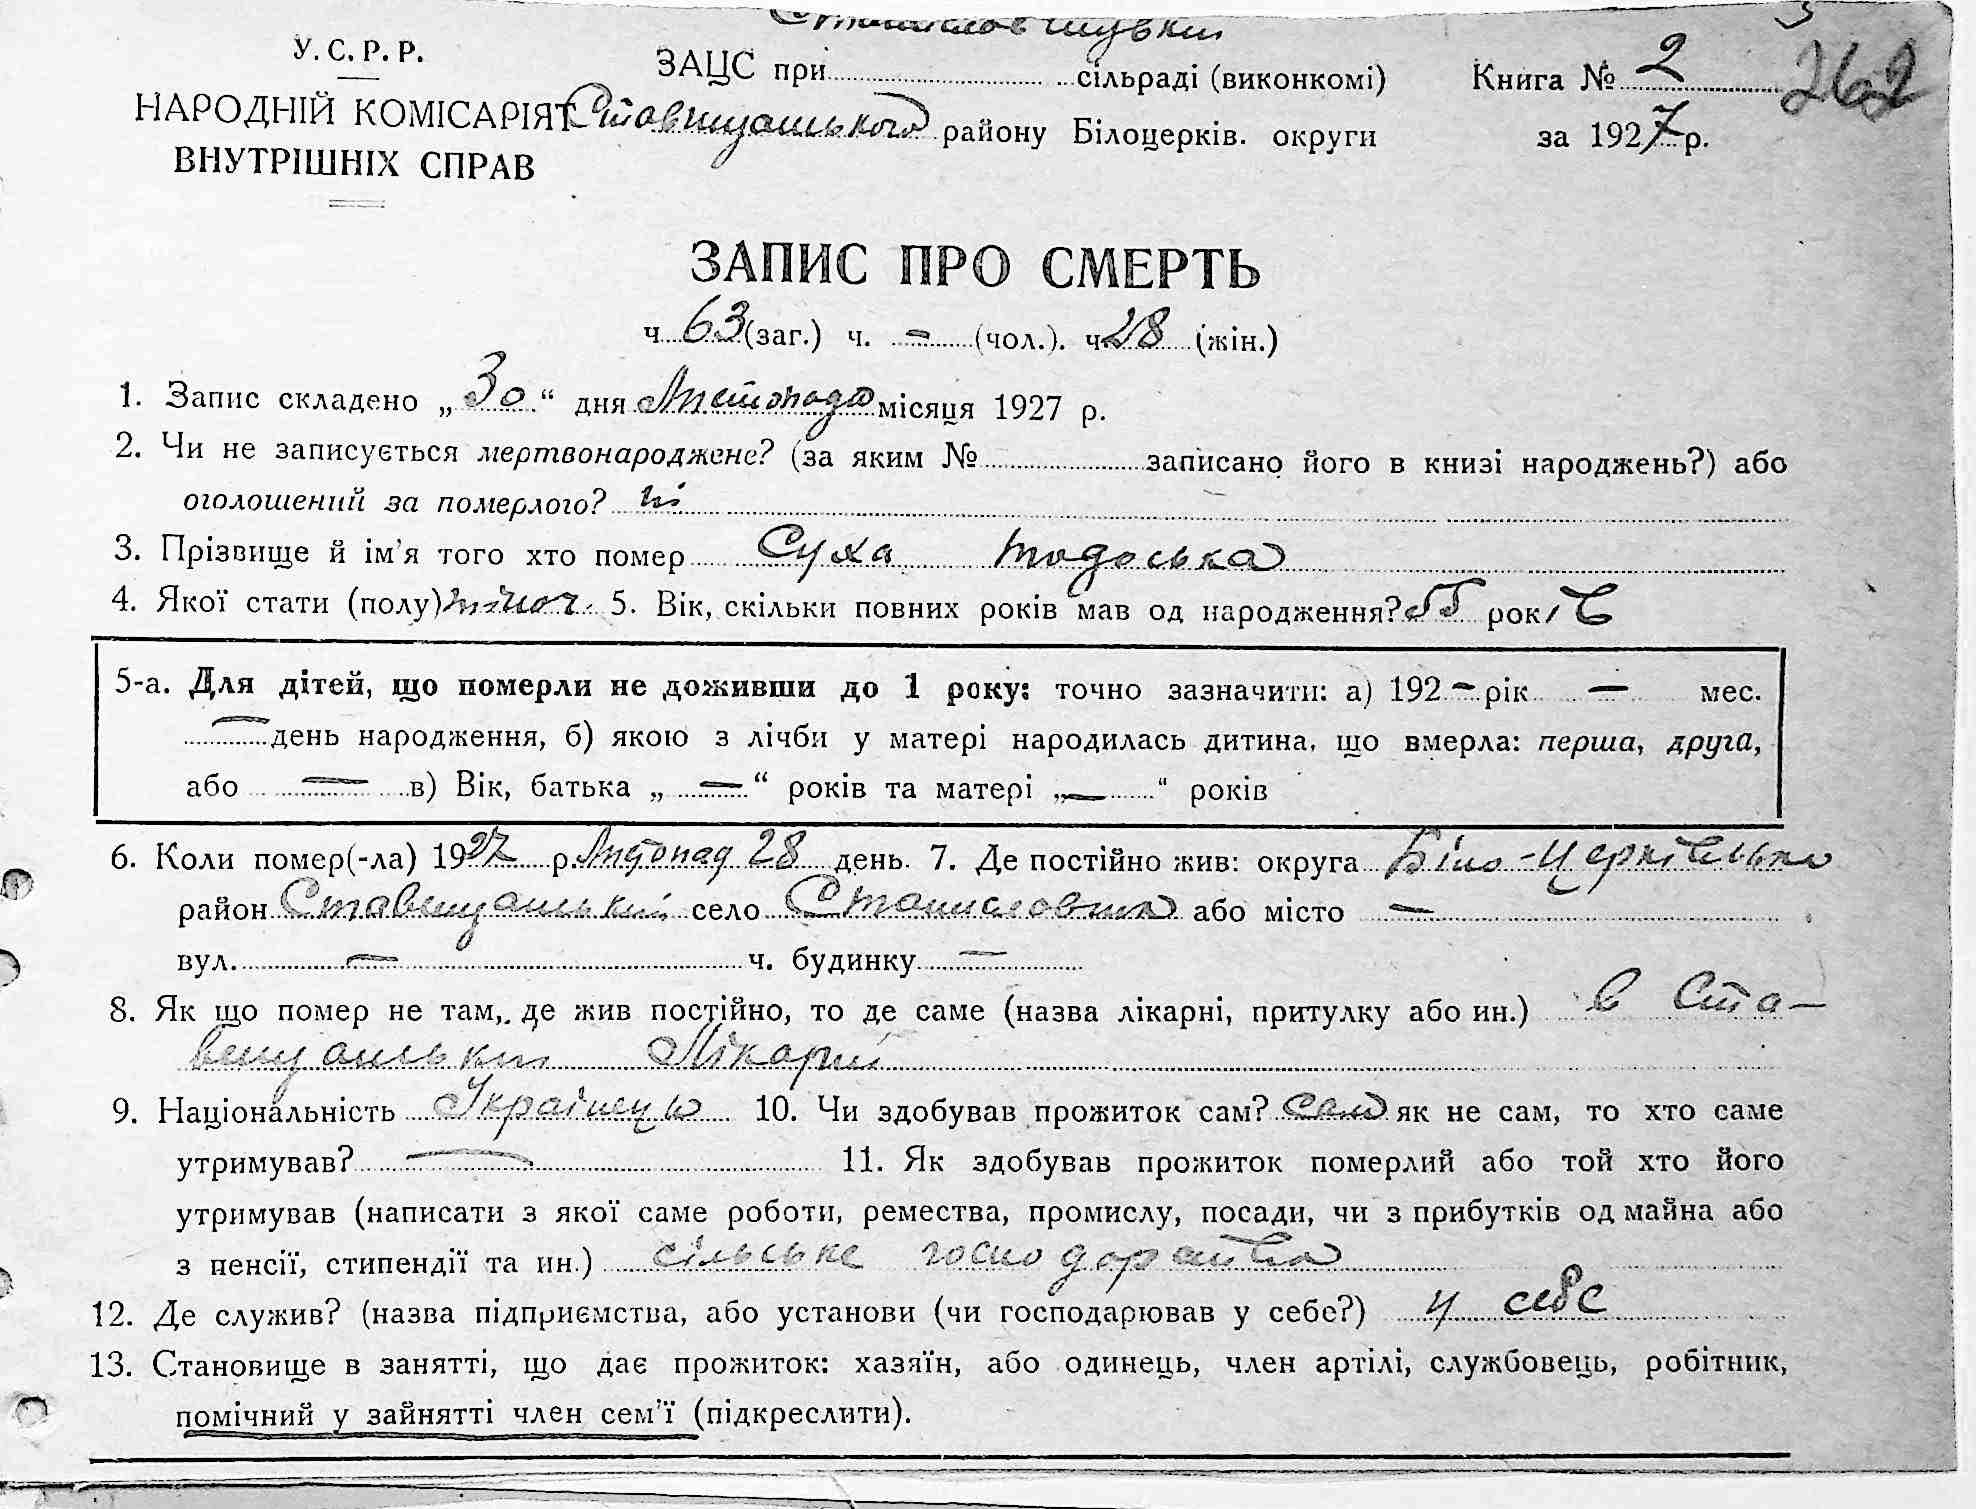 У.С.Р.Р.
НАРОДНІЙ КОМІСАРІЯТ
ВНУТРІШНІХ СПРАВ
ЗАЦС при сільраді (виконкомі)
Ставищанського району Білоцерків. округи
Книга № 2
262
за 1927 р.
ЗАПИС ПРО СМЕРТЬ
ч 63 (заг.) ч. – (чол.). ч 28 (жін.)
1. Запис складено „30“ дня Листопада місяця 1927 р.
2. Чи не записується мертвонароджене? (за яким № записано його в книзі народжень?) або
оголошений за померлого? ні
3. Прізвище й ім'я того хто помер Суха Тодоська
4. Якої стати (полу) жіноч. 5. Вік, скільки повних років мав од народження? 55 років
5-а. Для дітей, що померли не доживши до 1 року: точно зазначити: а) 192 – рік — мес.
— день народження, б) якою з лічби у матері народилась дитина, що вмерла: перша, друга,
або — в) Вік, батька „ — “ років та матері „ — “ років
6. Коли помер(-ла) 1927 р Листопад 28 день. 7. Де постійно жив: округа Біло-Церківська
район Ставищанський село або місто —
вул. — ч. будинку —
8. Як що помер не там, де жив постійно, то де саме (назва лікарні, притулку або ин.) в Ста-
вищанський Лікарні
9. Національність Українець 10. Чи здобував прожиток сам? сам як не сам, то хто саме
утримував? — 11. Як здобував прожиток померлий або той хто його
утримував (написати з якої саме роботи, ремества, промислу, посади, чи з прибутків од майна або
з пенсії, стипендії та ин.) сільське господарство
12. Де служив? (назва підприємства, або установи (чи господарював у себе?) у себе
13. Становище в занятті, що дає прожиток: хазяїн, або одинець, член артілі, службовець, робітник,
помічний у зайнятті член сем'ї (підкреслити).